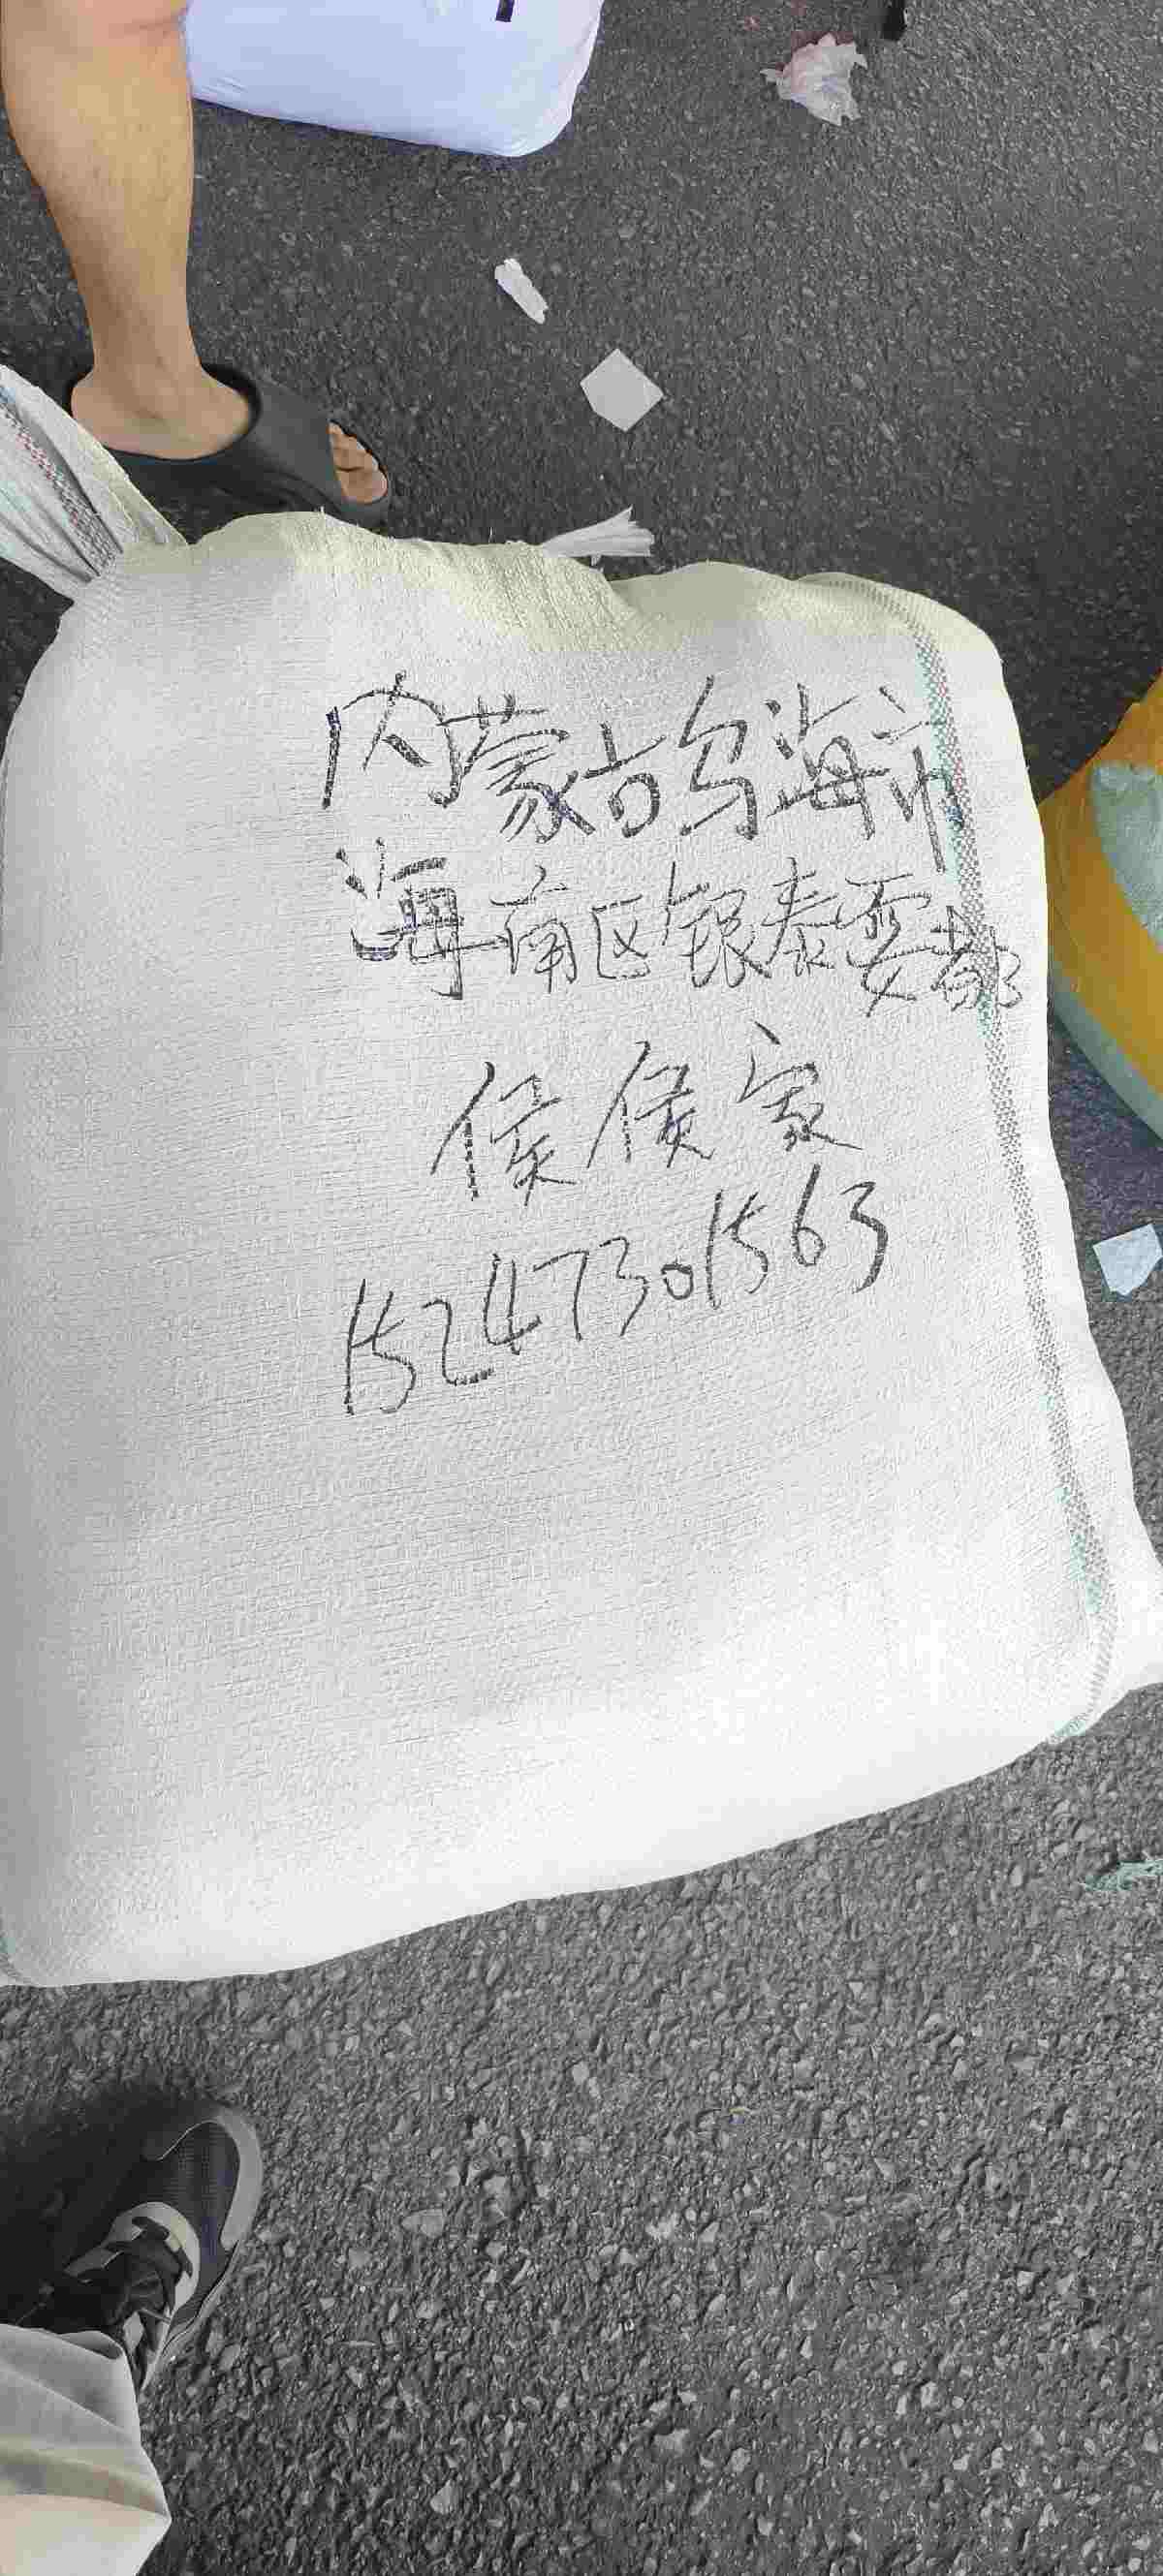 内蒙古乌海市
海南区银泰要都
侯侯家
15247301563